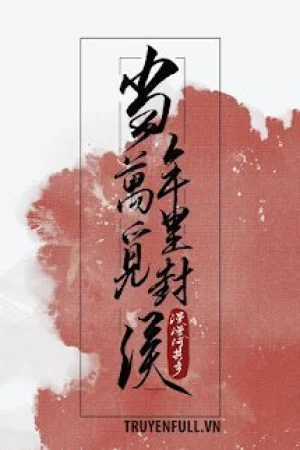 当年萬里覓封侯
漫漫何其多
TRUYENFULL.VN